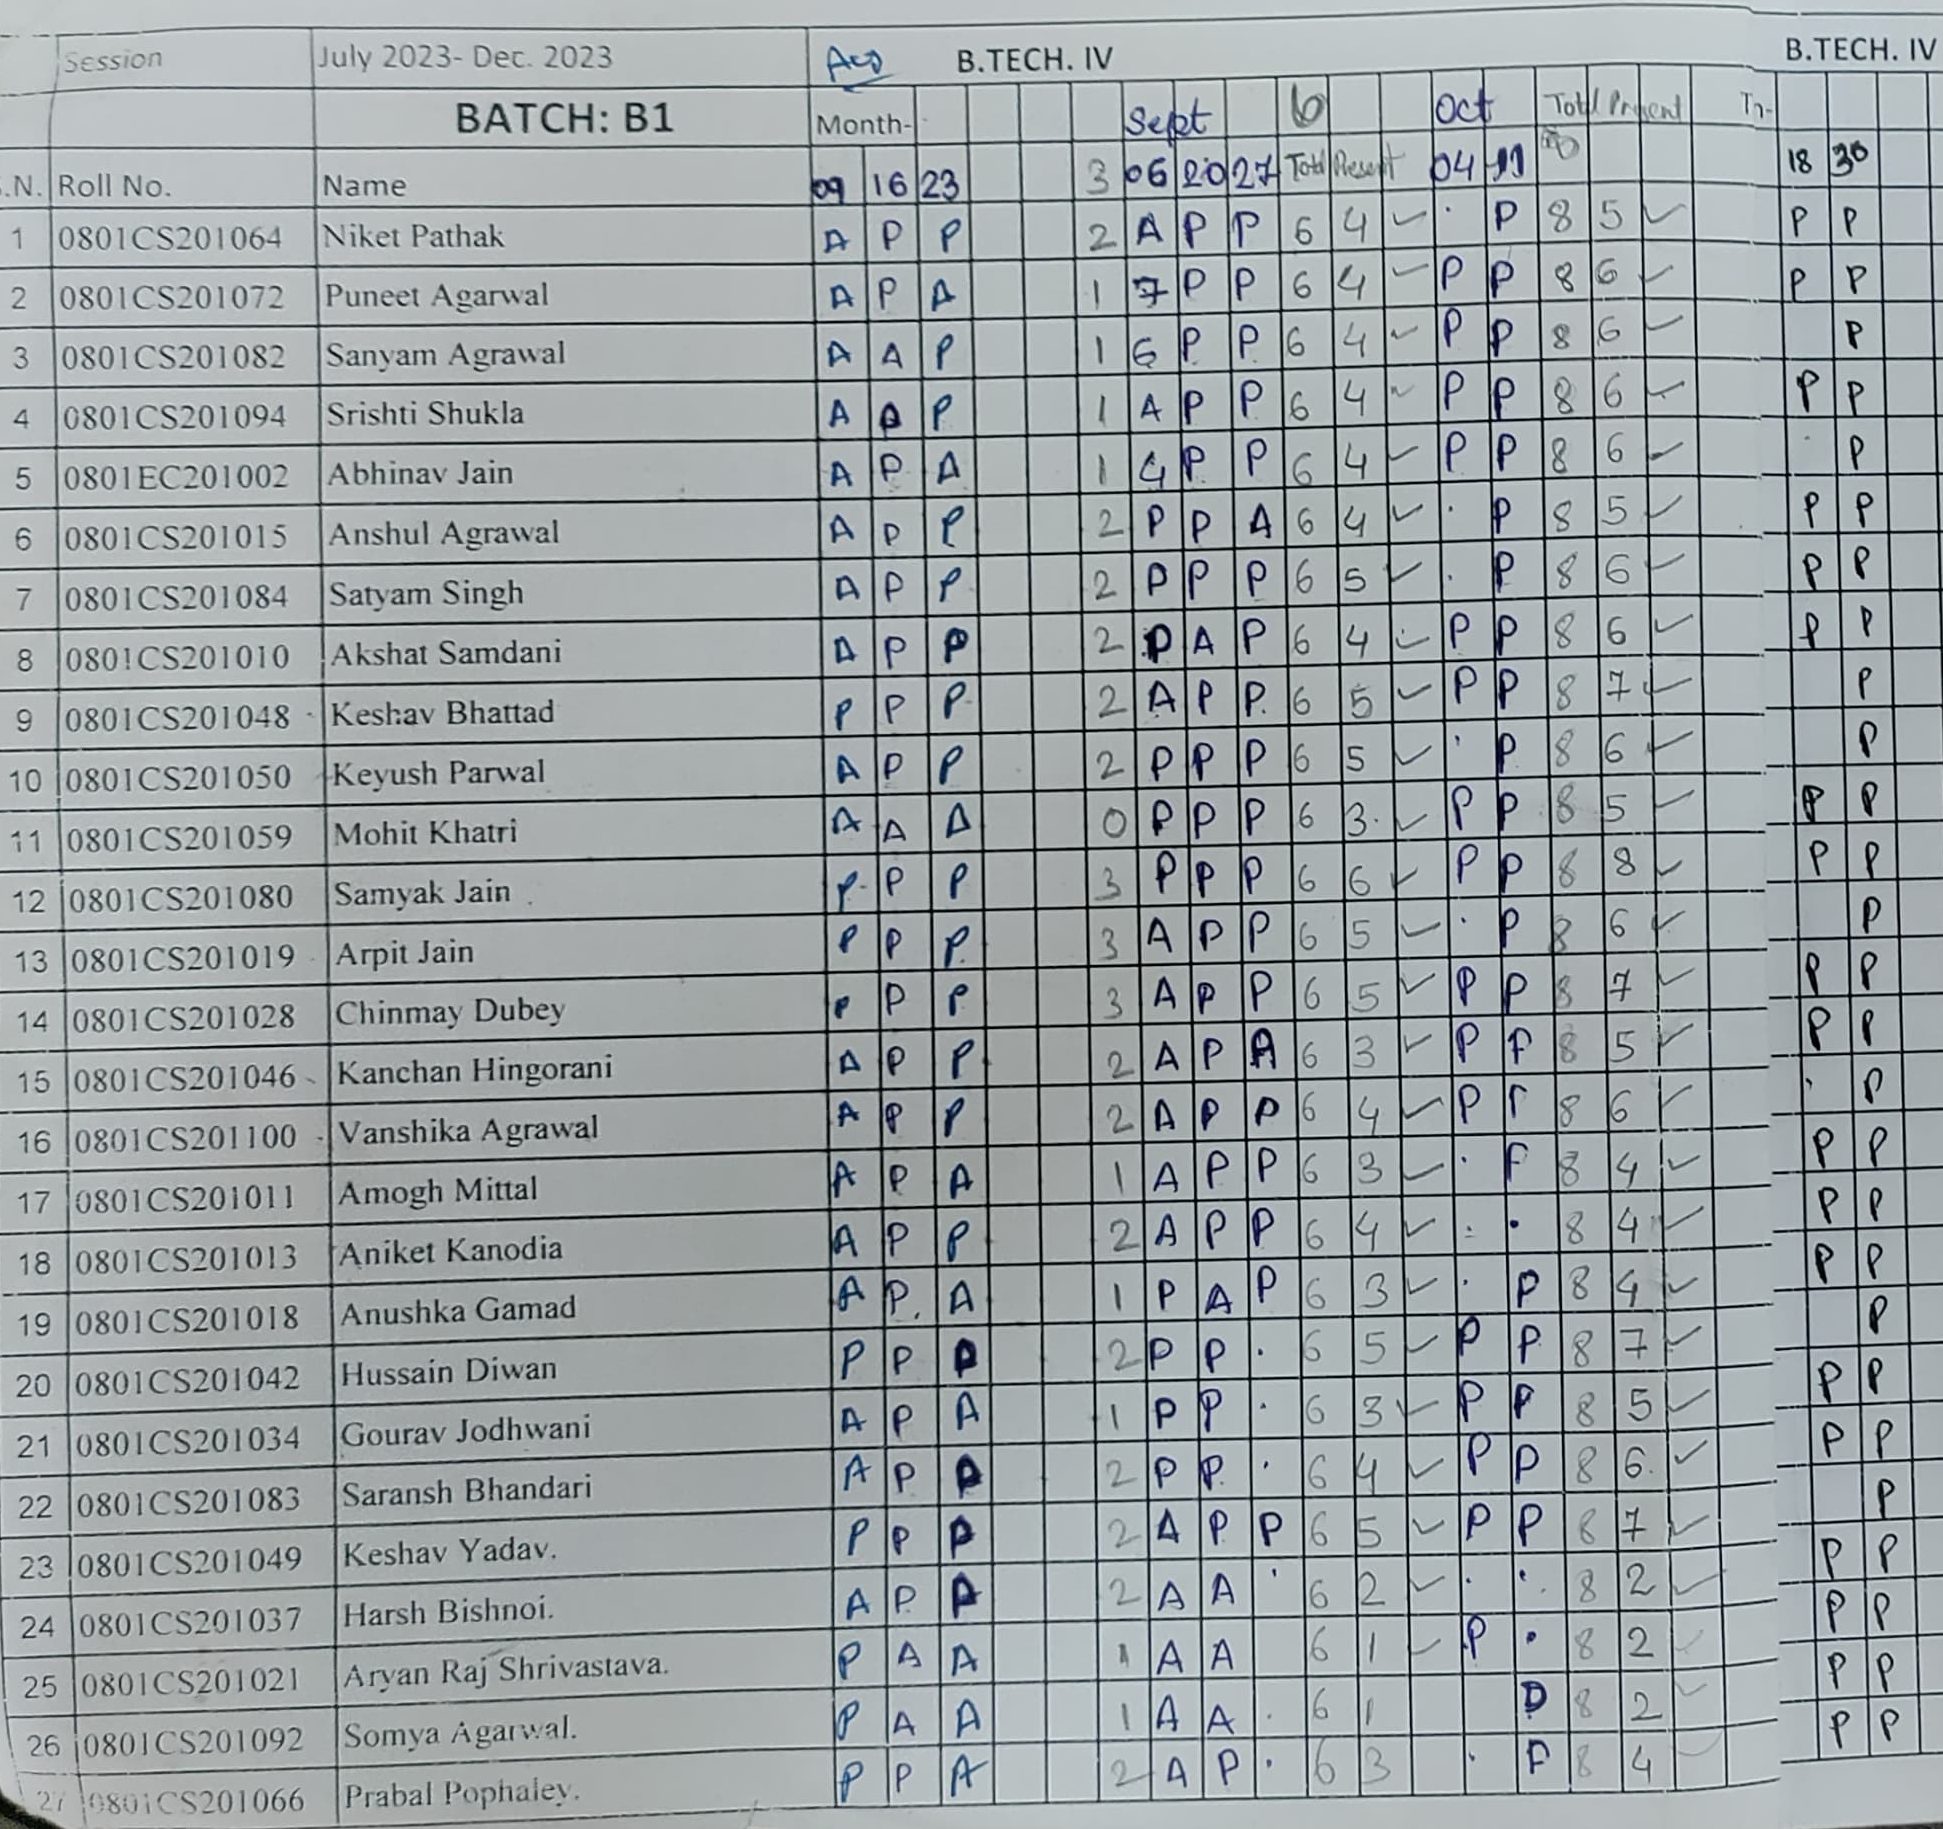 Session July 2023- Dec. 2023 Aug B.TECH. IV B.TECH. IV
BATCH: B1 Month- Sept 6 Oct Total Present
.N. Roll No. Name 09 16 23 3 06 20 27 Total Present 04 11 8 18 30
1 0801CS201064 Niket Pathak A P P 2 A P P 6 4 ✓ · P 8 5 ✓ P P
2 0801CS201072 Puneet Agarwal A P A 1 P P 6 4 ✓ P P 8 6 ✓ P P
3 0801CS201082 Sanyam Agrawal A A P 1 P P 6 4 ✓ P P 8 6 ✓ P
4 0801CS201094 Srishti Shukla A A P 1 A P P 6 4 ✓ P P 8 6 ✓ P P
5 0801EC201002 Abhinav Jain A P A 1 P P 6 4 ✓ P P 8 6 ✓ · P
6 0801CS201015 Anshul Agrawal A P P 2 P P A 6 4 ✓ · P 8 5 ✓ P P
7 0801CS201084 Satyam Singh A P P 2 P P P 6 5 ✓ · P 8 6 ✓ P P
8 0801CS201010 Akshat Samdani A P P 2 P A P 6 4 ✓ P P 8 6 ✓ P P
9 0801CS201048 Keshav Bhattad P P P 2 A P P 6 5 ✓ P P 8 7 ✓ P
10 0801CS201050 Keyush Parwal A P P 2 P P P 6 5 ✓ · P 8 6 ✓ P
11 0801CS201059 Mohit Khatri A A A 0 P P P 6 3 ✓ P P 8 5 ✓ P P
12 0801CS201080 Samyak Jain P P P 3 P P P 6 6 ✓ P P 8 8 ✓ P P
13 0801CS201019 Arpit Jain P P P 3 A P P 6 5 ✓ · P 8 6 ✓ P
14 0801CS201028 Chinmay Dubey P P P 3 A P P 6 5 ✓ P P 8 7 ✓ P P
15 0801CS201046 Kanchan Hingorani A P P 2 A P A 6 3 ✓ P P 8 5 ✓ P P
16 0801CS201100 Vanshika Agrawal A P P 2 A P P 6 4 ✓ P P 8 6 ✓ · P
17 0801CS201011 Amogh Mittal A P A 1 A P P 6 3 ✓ · P 8 4 ✓ P P
18 0801CS201013 Aniket Kanodia A P P 2 A P P 6 4 ✓ · · 8 4 ✓ P P
19 0801CS201018 Anushka Gamad A P. A 1 P A P 6 3 ✓ · P 8 4 ✓ P P
20 0801CS201042 Hussain Diwan P P P 2 P P · 6 5 ✓ P P 8 7 ✓ P
21 0801CS201034 Gourav Jodhwani A P A 1 P P · 6 3 ✓ P P 8 5 ✓ P P
22 0801CS201083 Saransh Bhandari A P P 2 P P · 6 4 ✓ P P 8 6 ✓ P P
23 0801CS201049 Keshav Yadav. P P P 2 A P P 6 5 ✓ P P 8 7 ✓ P
24 0801CS201037 Harsh Bishnoi. A P P 2 A A · 6 2 ✓ · · 8 2 ✓ P P
25 0801CS201021 Aryan Raj Shrivastava. P A A 1 A A 6 1 ✓ P · 8 2 ✓ P P
26 0801CS201092 Somya Agarwal. P A A 1 A A · 6 1 P 8 2 ✓ P P
27 0801CS201066 Prabal Pophaley. P P A 2 A P · 6 3 · P 8 4 ✓ P P